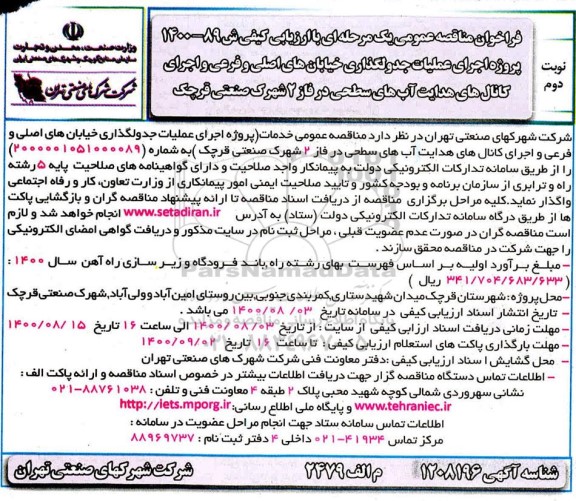 وزارت صنعت، معدن و تجارت
سازمان صنایع کوچک و شهرکهای صنعتی ایران
شرکت شهرکهای صنعتی تهران
فراخوان مناقصه عمومی یک مرحله ای با ارزیابی کیفی ش ۸۹-۱۴۰۰
پروژه اجرای عملیات جدولگذاری خیابان های اصلی و فرعی و اجرای
کانال های هدایت آب های سطحی در فاز ۲ شهرک صنعتی قرچک
نوبت
دوم
شرکت شهرکهای صنعتی تهران در نظر دارد مناقصه عمومی خدمات (پروژه اجرای عملیات جدولگذاری خیابان های اصلی و
فرعی و اجرای کانال های هدایت آب های سطحی در فاز ۲ شهرک صنعتی قرچک ) به شماره (۲۰۰۰۰۰۱۰۵۱۰۰۰۰۸۹)
را از طریق سامانه تدارکات الکترونیکی دولت به پیمانکار واجد صلاحیت و دارای گواهینامه های صلاحیت پایه ۵ رشته
راه و ترابری از سازمان برنامه و بودجه کشور و تایید صلاحیت ایمنی امور پیمانکاری از وزارت تعاون، کار و رفاه اجتماعی
واگذار نماید. کلیه مراحل برگزاری مناقصه از دریافت اسناد مناقصه تا ارائه پیشنهاد مناقصه گران و بازگشایی پاکت
ها از طریق درگاه سامانه تدارکات الکترونیکی دولت (ستاد) به آدرس www.setadiran.ir انجام خواهد شد و لازم
است مناقصه گران در صورت عدم عضویت قبلی ، مراحل ثبت نام در سایت مذکور و دریافت گواهی امضای الکترونیکی
را جهت شرکت در مناقصه محقق سازند .
- مبلغ برآورد اولیه بر اساس فهرست بهای رشته راه، باند فرودگاه و زیر سازی راه آهن سال ۱۴۰۰ :
(۳۴۱/۷۰۴/۶۸۳/۶۳۳ ریال )
-محل پروژه: شهرستان قرچک میدان شهید ستاری، کمربندی جنوبی، بین روستای امین آباد و ولی آباد، شهرک صنعتی قرچک
- تاریخ انتشار اسناد ارزیابی کیفی در سامانه تاریخ ۰۳/ ۰۸/ ۱۴۰۰ می باشد .
- مهلت زمانی دریافت اسناد ارزابی کیفی از سایت : از تاریخ ۱۴۰۰/۰۸/۰۳ الی ساعت ۱۶ تاریخ ۱۵/ ۱۴۰۰/۰۸
- مهلت بارگذاری پاکت های استعلام ارزیابی کیفی: تا ساعت ۱۶ تاریخ ۱۴۰۰/۰۹/۰۲
- محل گشایش اسناد ارزیابی کیفی : دفتر معاونت فنی شرکت شهرک های صنعتی تهران
- اطلاعات تماس دستگاه مناقصه گزار جهت دریافت اطلاعات بیشتر در خصوص اسناد مناقصه و ارائه پاکت الف :
نشانی سهروردی شمالی کوچه شهید محبی پلاک ۲ طبقه ۴ معاونت فنی و تلفن : ۸۸۷۶۱۰۳۸-۰۲۱
www.tehraniec.ir و پایگاه ملی اطلاع رسانی: http://iets.mporg.ir
اطلاعات تماس سامانه ستاد جهت انجام مراحل عضویت در سامانه :
مرکز تماس ۴۱۹۳۴-۰۲۱ داخلی ۴ دفتر ثبت نام : ۸۸۹۶۹۷۳۷
شناسه آگهی ۱۲۰۸۱۹۶
م الف ۲۴۷۹
شرکت شهرکهای صنعتی تهران
ParsNamadData